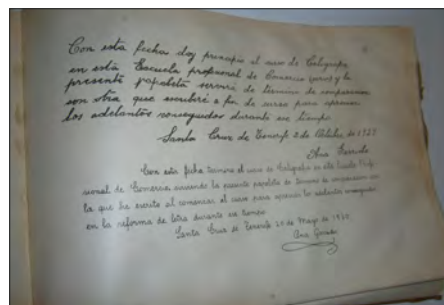 Con esta fecha doy principio al curso de Caligrafía
en esta Escuela profesional de Comercio y la
presente papeleta servirá de término de comparación
con otra que escribiré a fin de curso para apreciar
los adelantos conseguidos durante ese tiempo.
Santa Cruz de Tenerife 2 de Octubre de 1929
Ana
Con esta fecha termina el curso de Caligrafía en esta Escuela Profe-
sional de Comercio sirviendo la presente papeleta de término de comparación con
la que he escrito al comenzar el curso para apreciar los adelantos conseguidos
en la reforma de letra durante ese tiempo.
Santa Cruz de Tenerife 20 de Mayo de 1930
Ana